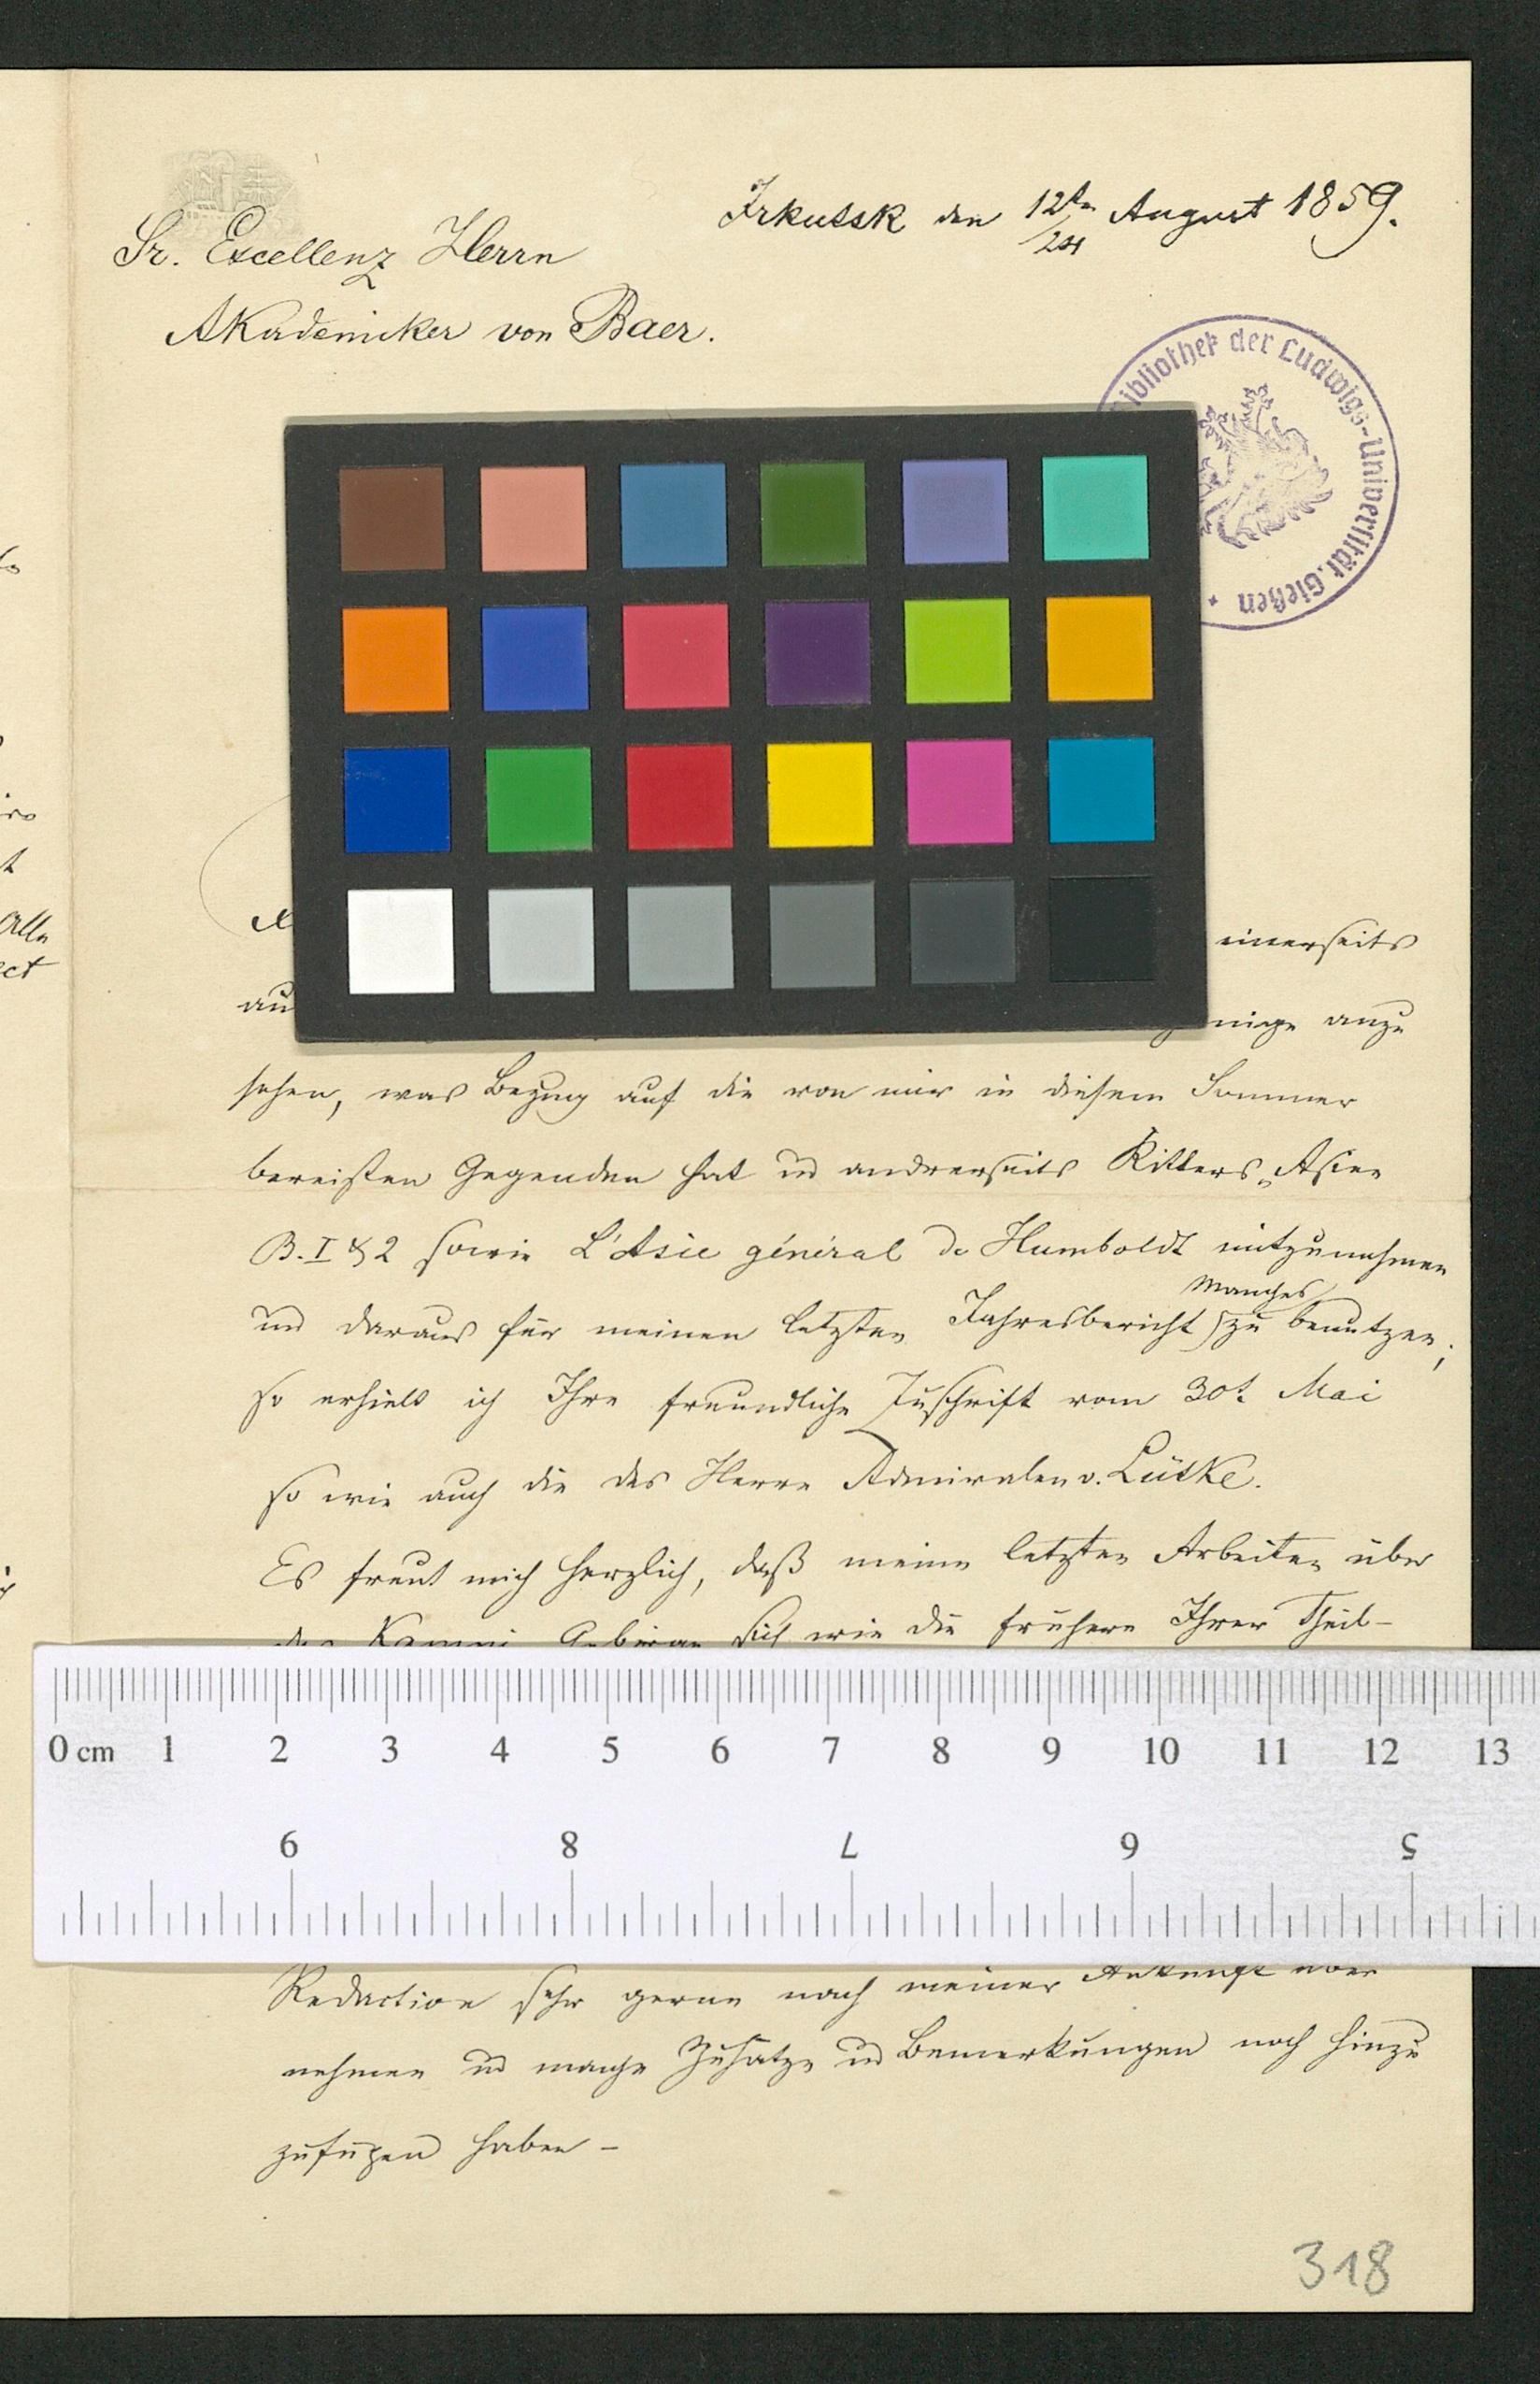 Irkutsk den 12ten August 1859.
/24
Sr. Excellenz Herrn
Akademiker von Baer.
Bibliothek der Ludwigs-Universität. Gießen
einerseits
anzu
sehen, was Bezug auf die von mir in diesem Sommer
bereisten Gegenden hat und andrerseits Ritters Asien
B. I & 2 sowie L'Asie général de Humboldt mitzunehmen
Manches
und daraus für meinen letzten Jahresbericht zu benutzen;
so erhielt ich Ihre freundliche Zuschrift vom 30t Mai
so wie auch die des Herrn Admiralen v. Lütke.
Es freut mich herzlich, daß meine letzten Arbeiten über
wie die frühere Ihrer Theil-
0 cm 1 2 3 4 5 6 7 8 9 10 11 12 13
9 8 7 6 5
Redaction sehr gerne nach meiner Ankunft über
nehmen und manche Zusätze und Bemerkungen noch hinzu
zufügen haben –
318